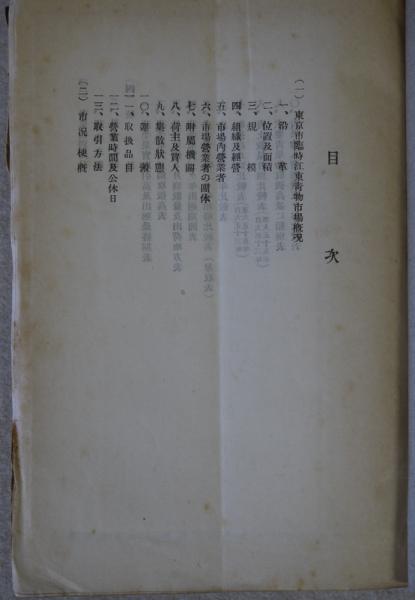 目次
(一) 東京市臨時江東青物市場概況
一、沿革
二、位置及面積
三、規模
四、組織及經營
五、市場內營業者
六、市場營業者の團体
七、附屬機關
八、荷主及買人
九、集散狀態
一一、取扱品目
一二、營業時間及公休日
一三、取引方法
(二) 市況梗概